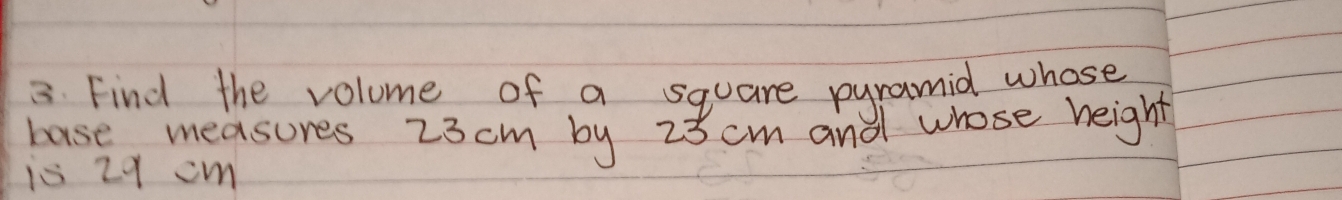 3. Find the volume of a square pyramid whose
base measures 23cm by 23cm and whose height
is 29 cm